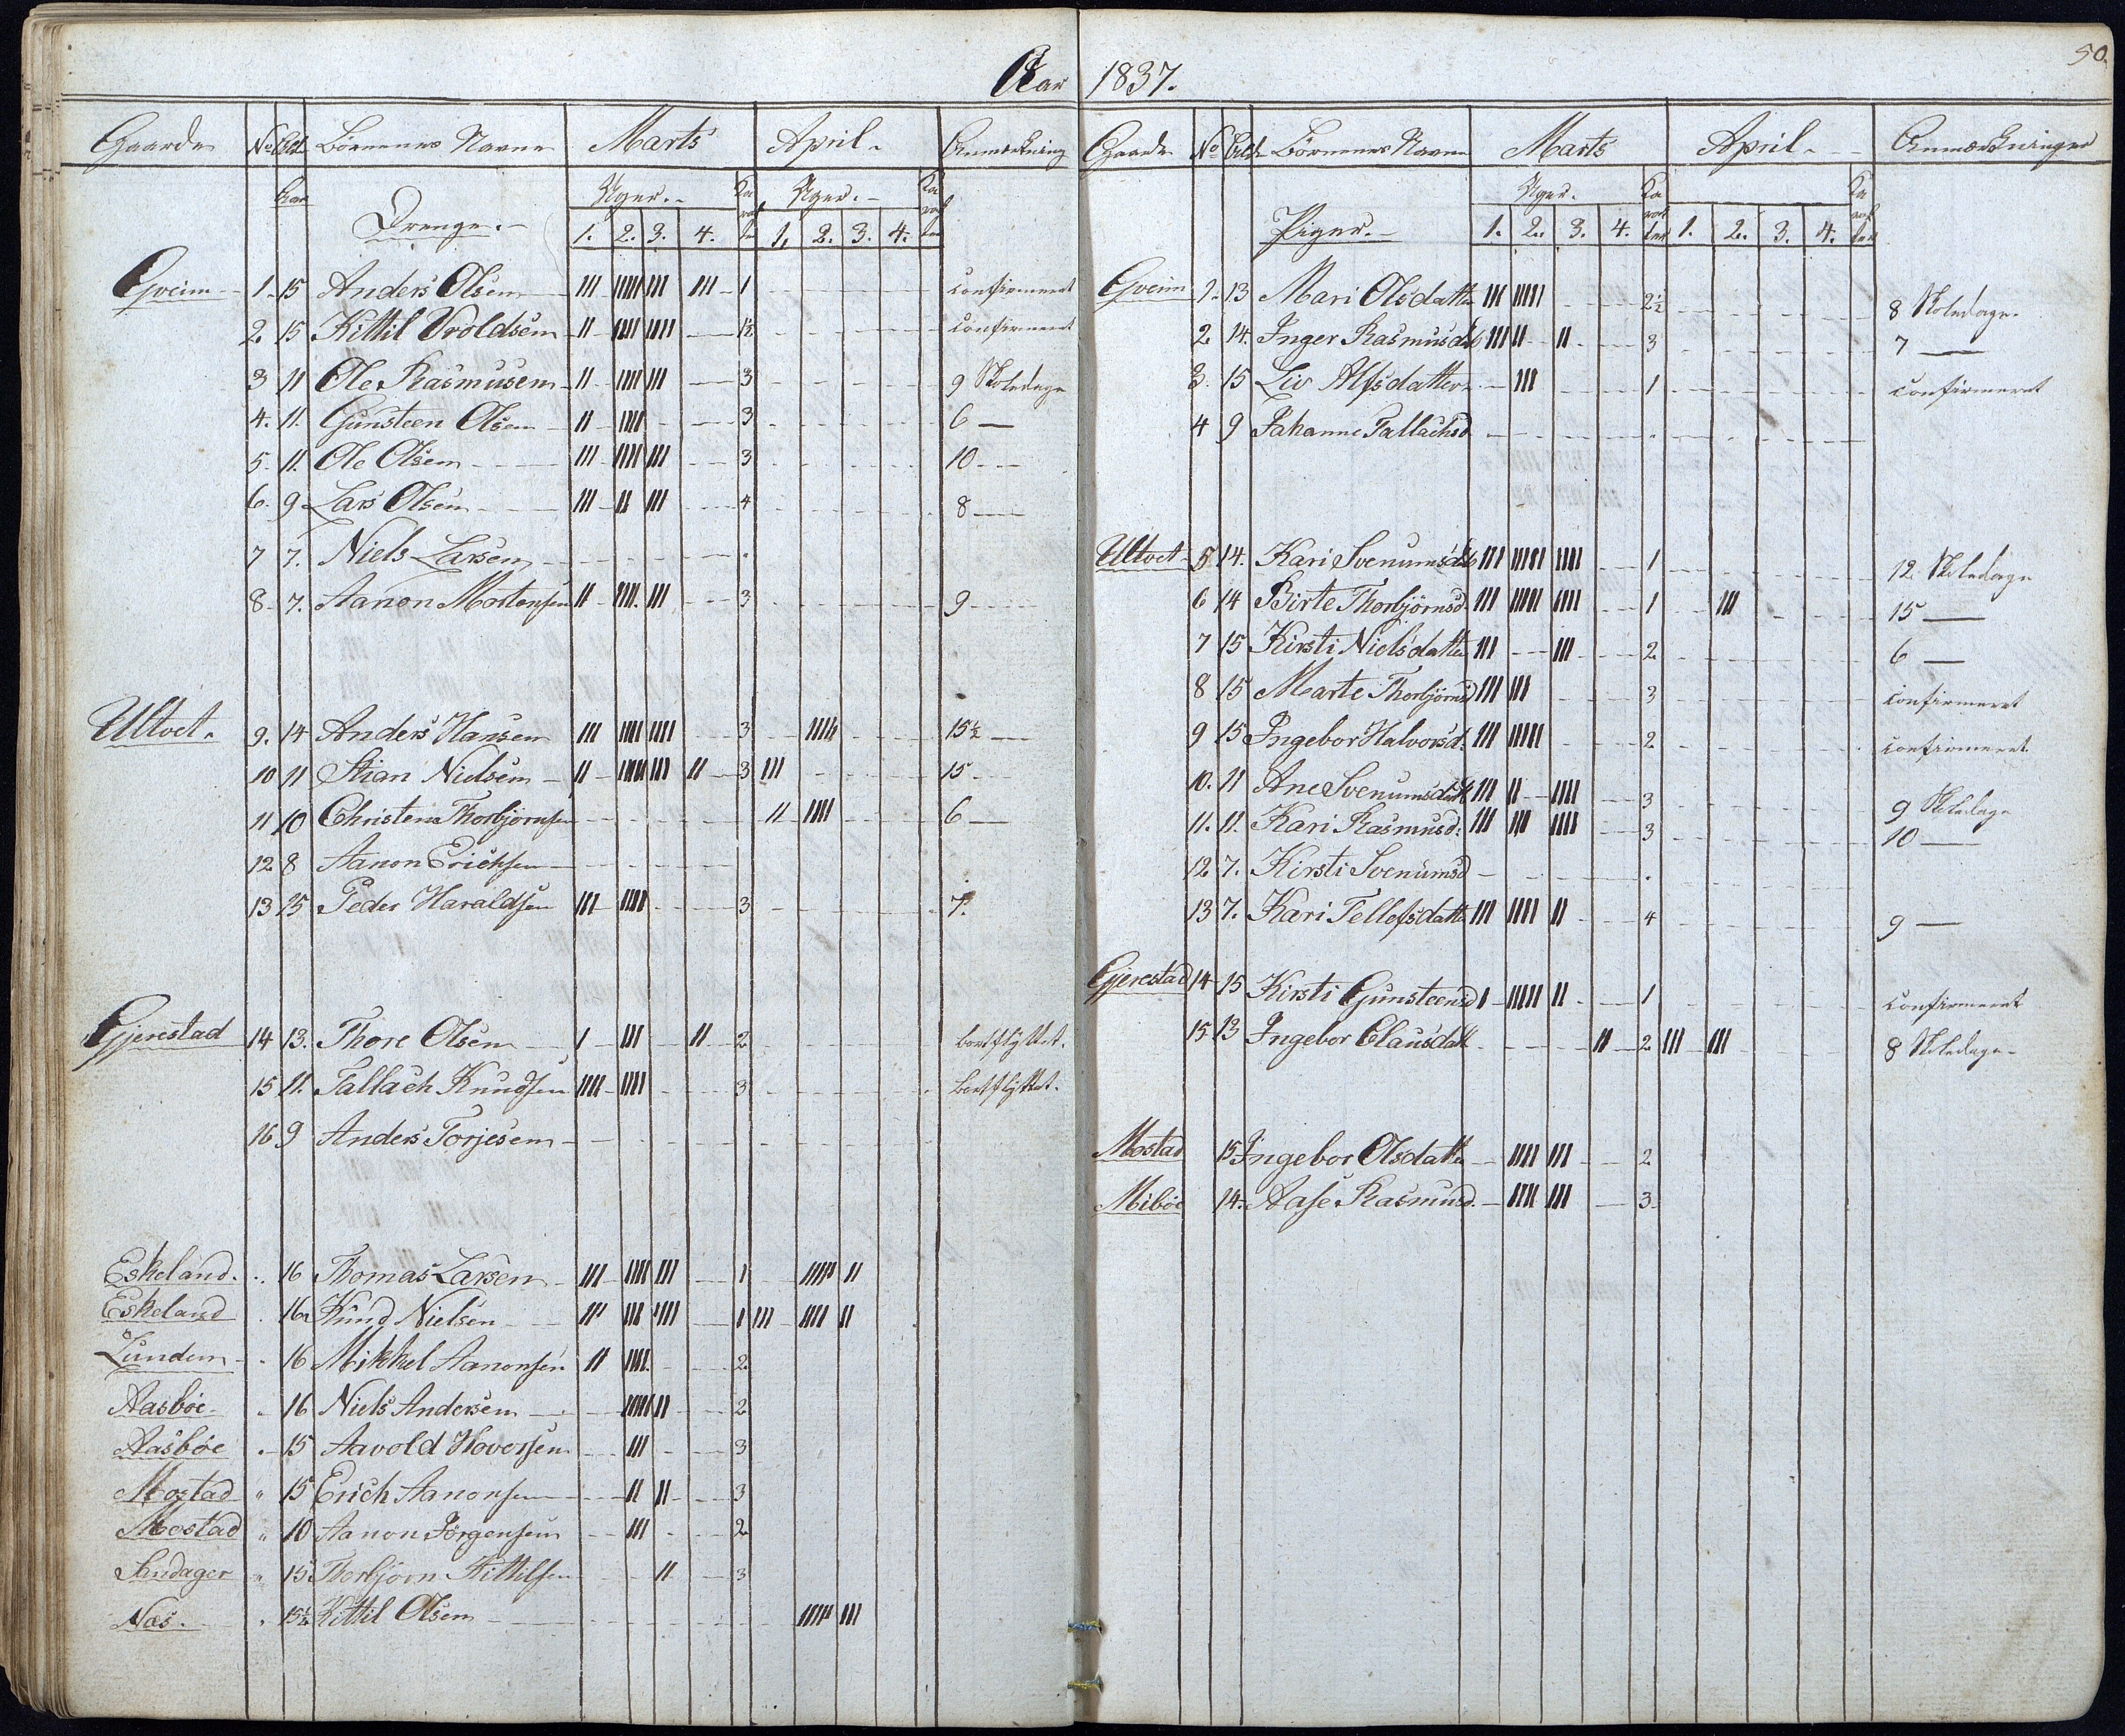 50.
Aar 1837.
Gaarde No Alder Børnenes Navne Marts April Anmærkning
Aar Drenge. Uger. Karakter Uger. Karakter
1. 2. 3. 4. 1. 2. 3. 4.
Gveim 1. 15 Anders Olsen III IIIII III III 1 confirmeret
2. 15 Kittil Vroldsen II IIII IIII 1½ confirmeret
3 11 Ole Rasmusen II IIII III 3 9 Skoledage
4. 11. Gunsteen Olsen II IIII 3 6 —
5. 11. Ole Olsen III IIII III 3 10 —
6. 9 Lars Olsen III II III 4 8 —
7 7. Niels Larsen
8. 7. Aanon Mortensen II IIII III 3 9 —
Ultvet. 9. 14 Anders Hansen III IIII IIII 3 15½ —
10 11 Stian Nielsen II IIIII III II 3 III 15 —
11 10 Christen Thorbjørnsen II IIII 6 —
12 8 Aanon Erichsen
13 15 Peder Haraldsen III IIII 3 7.
Gjerestad 14 13. Thore Olsen I III II 2 bortflyttet.
15 11. Tallach Knudsen IIII IIII 3 bortflyttet.
16 9 Anders Torjesen
Eskeland. 16 Thomas Larsen III IIIII III 1 IIIII II
Eskeland 16 Knud Nielsen III III IIII 1 III IIII II
Lunden 16 Mikkel Aanonsen II IIII 2
Aasbøe 16 Niels Andersen IIIII II 2
Aasbøe 15 Aavold Hoversen III 3
Mostad " 15 Erich Aanonsen II II 3
Mostad " 10 Aanon Jörgensen III 2
Sandager " 15 Thorbjørn Kittilsen II 3
Næs. 15½ Kittil Olsen IIIII III
Gaarde No Alder Børnenes Navne Marts April Anmærkninger
Piger. Uger. Karakter Karakter
1. 2. 3. 4. 1. 2. 3. 4.
Gveim 1. 13 Mari Olsdatter III IIIII 2½ 8 Skoledage.
2 14. Inger Rasmusd III II II 3 7 —
3. 15 Liv Alfsdatter III 1 confirmeret
4 9 Johanne Tallachsd
Ultvet 5 14. Kari Svenumsd III IIIII IIII 1 12 Skoledage
6 14 Birte Thorbjørnsd III IIIII IIII 1 III 15 —
7 15 Kirsti Nielsdatter III III 2 6 —
8 15 Marte Thorbjørnsd III III 3 confirmeret
9 15 Ingebor Halvorsd. III IIIII 2 confirmeret
10. 11 Ane Svenumsdatt III II IIII 3 9 Skoledage
11. 11. Kari Rasmusd. III III IIII 3 10 —
12. 7. Kirsti Svenumsd
13 7. Kari Tellefsdatter III IIII II 4 9 —
Gjerestad 14 15 Kirsti Gunsteensd I IIIII II 1 confirmeret
15 13 Ingebor Clausdatt II 2 III III 8 Skoledage
Mostad 15 Ingebor Olsdatter IIII III 2
Mibøe 14. Aase Rasmusd. IIII III 3